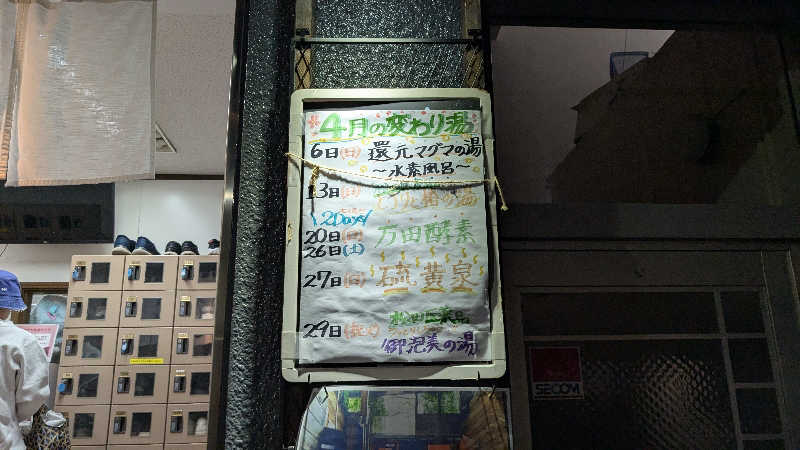 4月の変わり湯
6日(日) 還元マグマの湯
～水素風呂～
13日(日)
2Days
20日(日) 万田酵素
26日(土)
27日(日) 硫黄泉
29日
御泡美の湯
SECOM